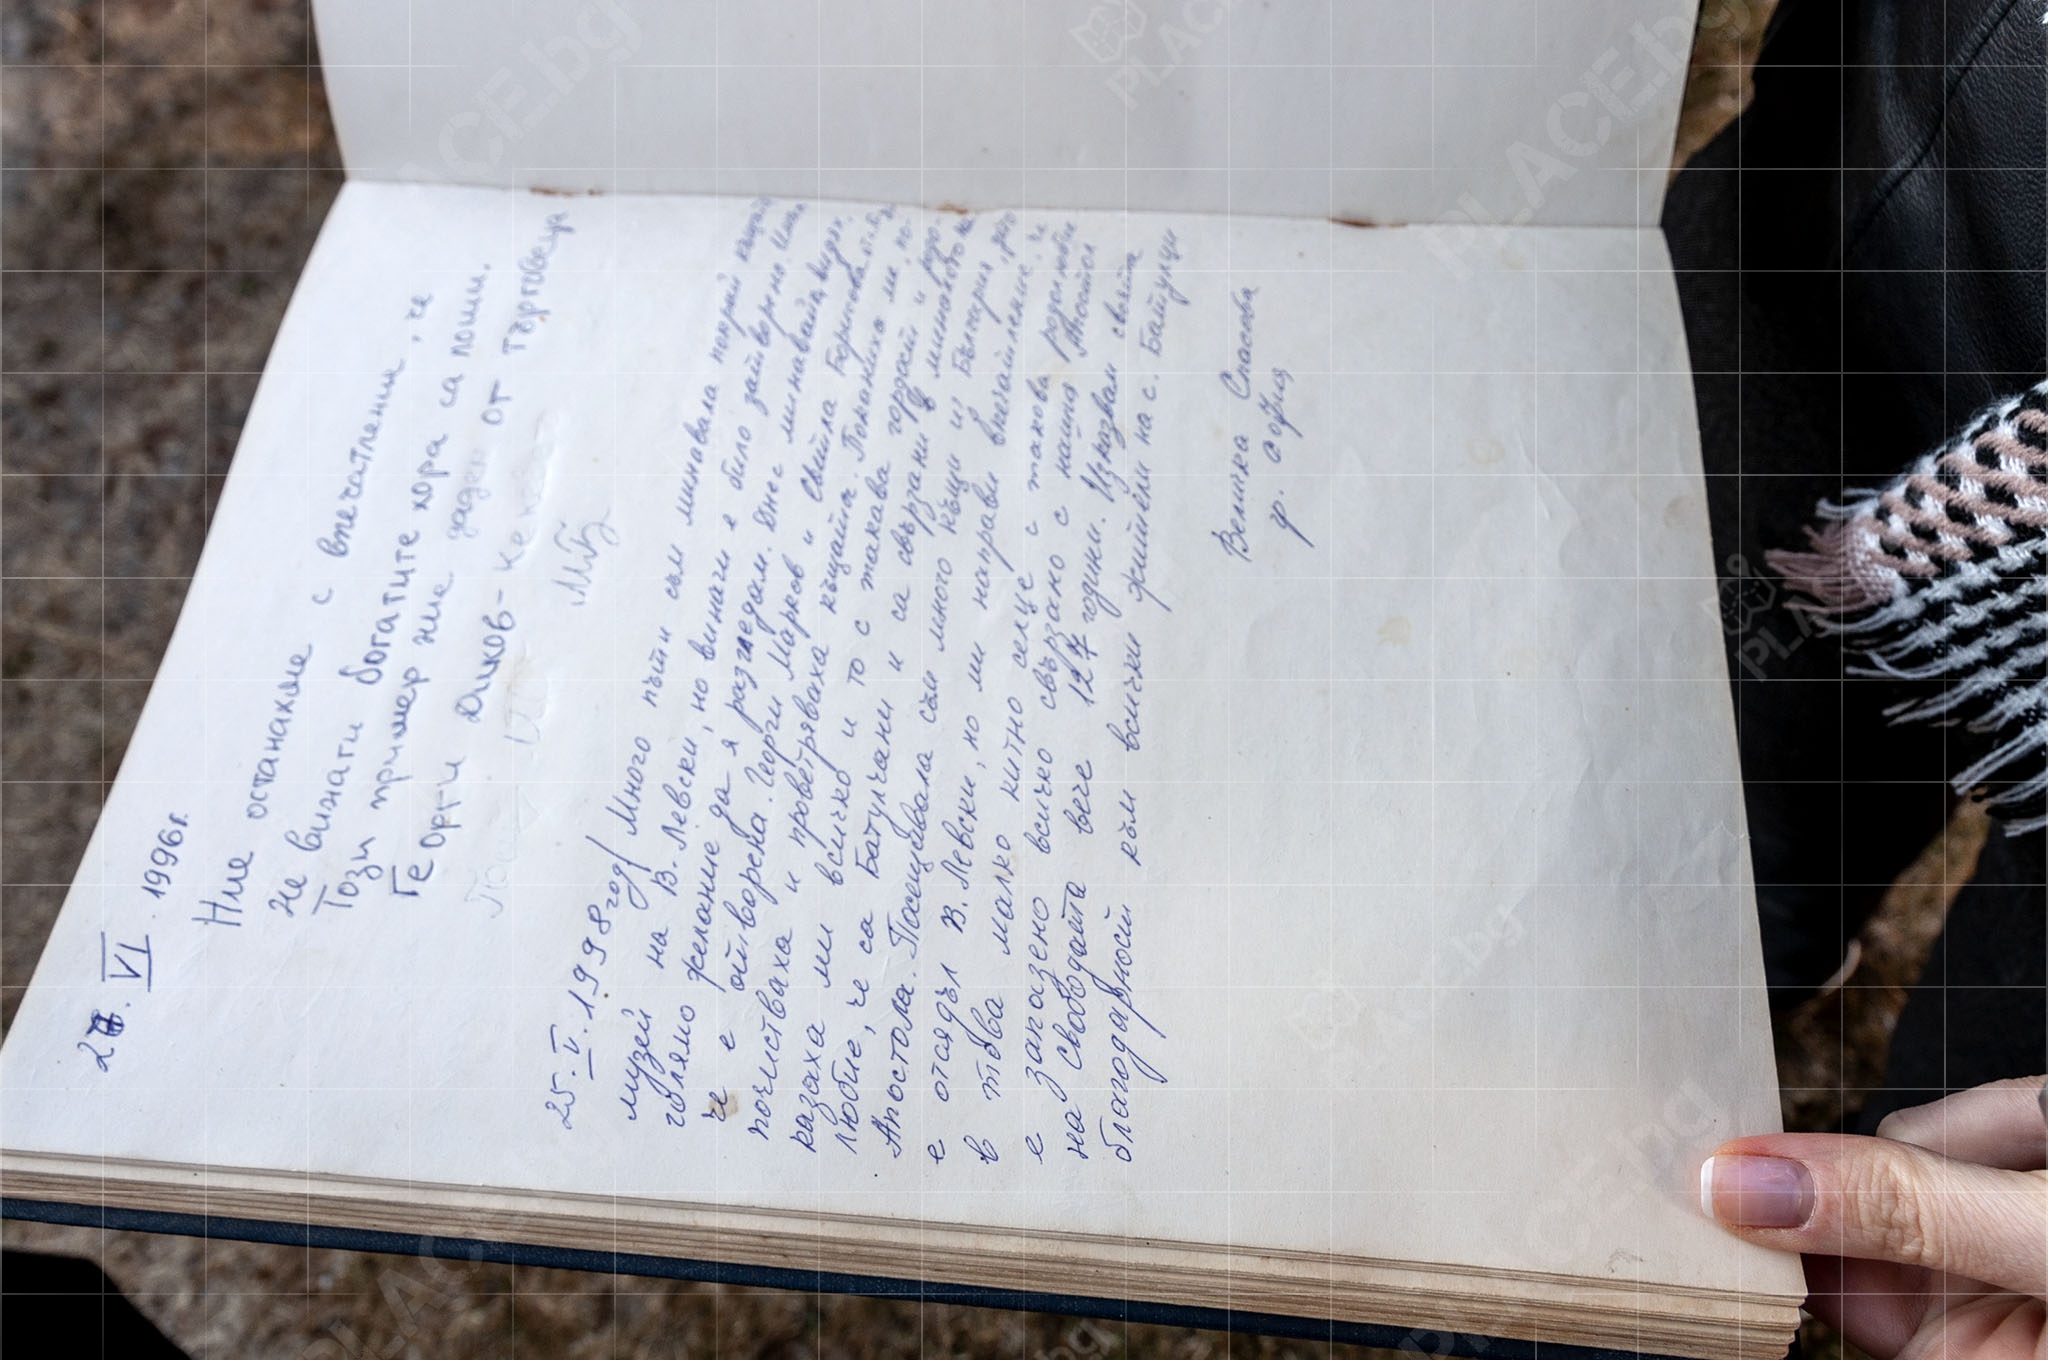 27. VI. 1996г.
Ние останахме с впечатление, че
не винаги богатите хора са лоши.
Този пример ние даден от търговеца
Георги Дамов-
25. V. 1998 год/ Много пъти съм минавала покрай къщата
музей на В. Левски, но винаги е било затворено. Имах
голямо желание да я разгледам. Днес минавайки, видях,
че е отворена. Георги Марков и Светла
почистваха и проветряваха къщата. Поканиха ме, по-
казаха ми всичко и то с такава гордост и родо-
любие, че са Батулчани и са свързани в миналото на
Апостола. Посещавала съм много къщи из България, где
е отсядъл В. Левски, но ми направи впечатление, че
в това малко китно селце с такова родолюбие
е запазено всичко свързано с нашия Апостол
на свободата вече 127 години. Изказвам своята
благодарност към всички жители на с. Батулци
Величка Спасова
гр. София
PLACE.bg